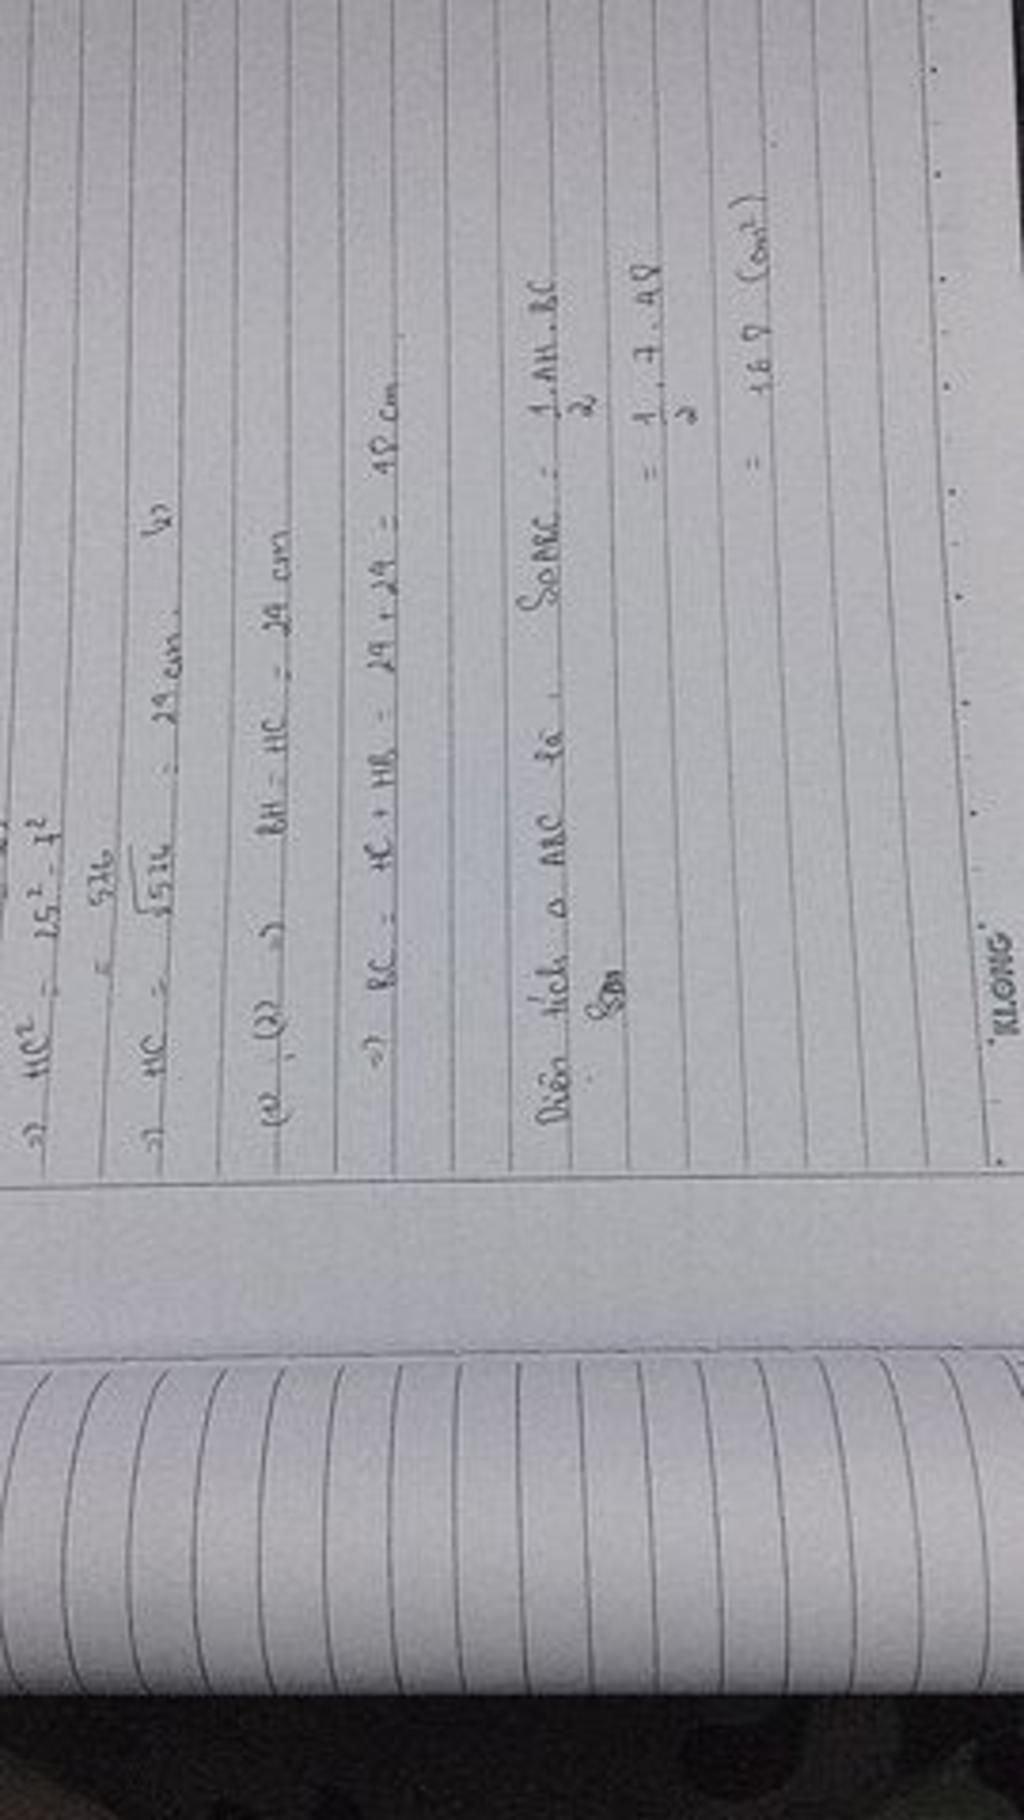 => HC² = 25² - 7²
= 576
=> HC = √576 = 24 cm. (2)
(1), (2) => BH = HC = 24 cm
=> BC = HC + HB = 24 + 24 = 48 cm
Diện tích Δ ABC là : SΔABC = 1/2 . AH . BC
= 1/2 . 7 . 48
= 168 (cm²)
"KLONG"